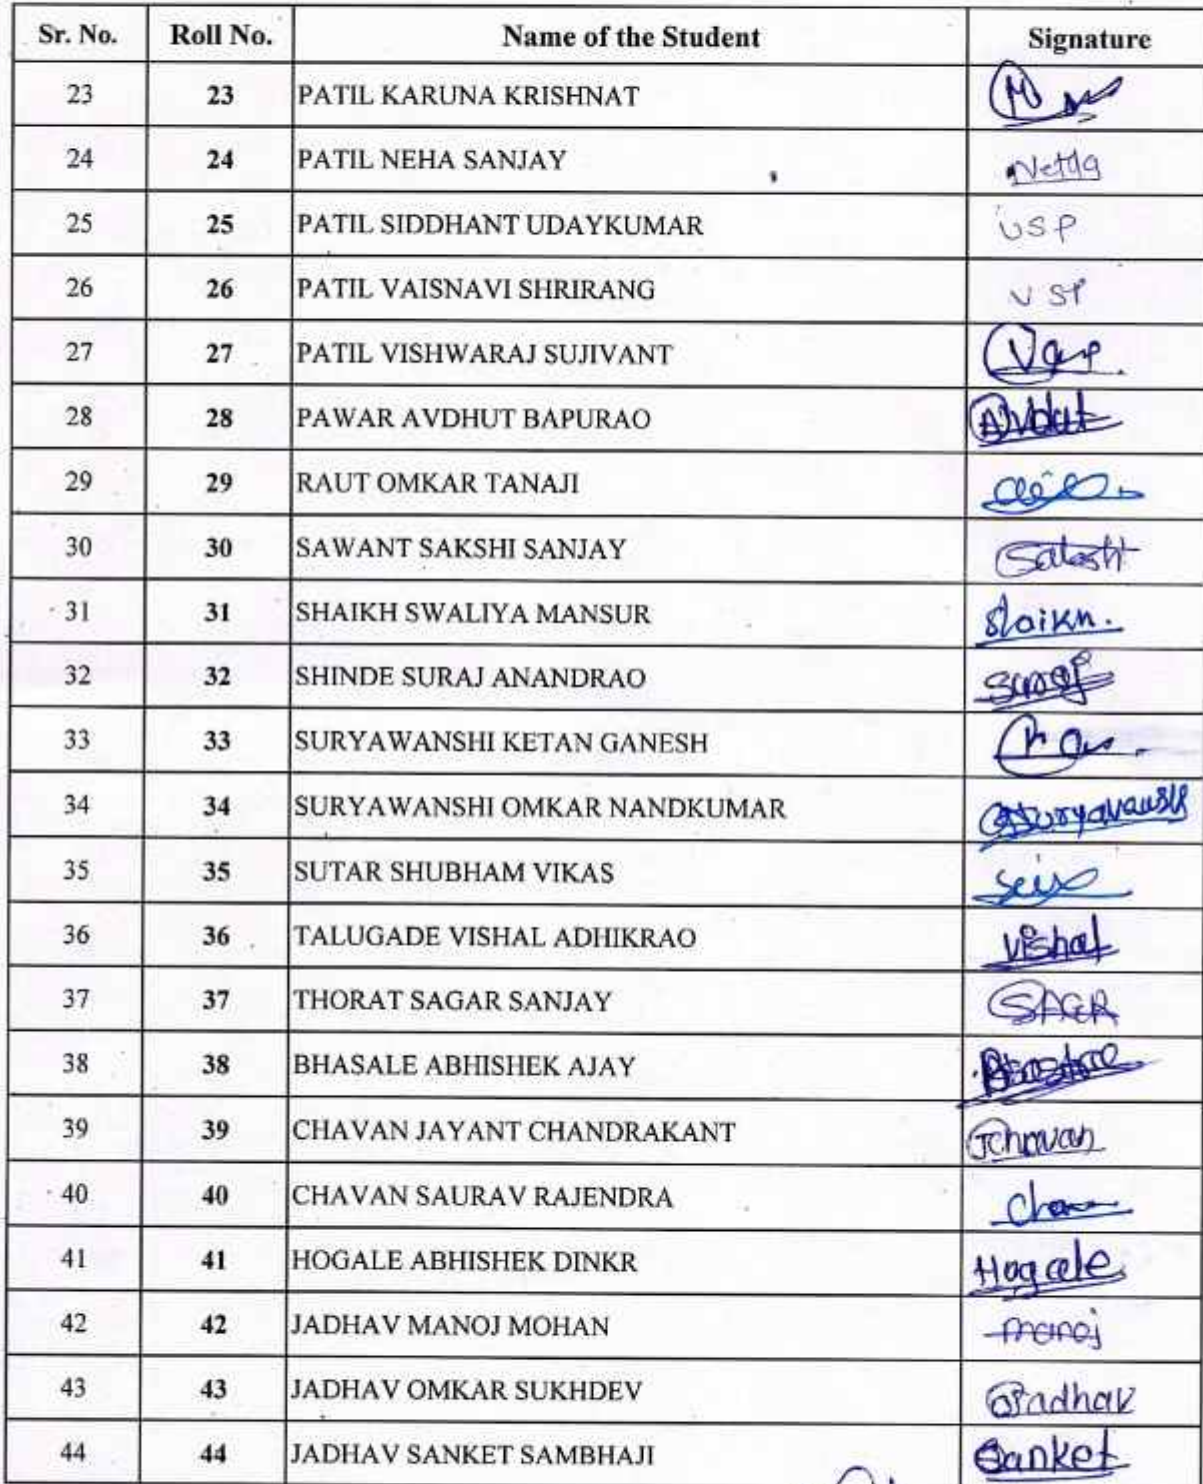 Sr. No. Roll No. Name of the Student Signature
23 23 PATIL KARUNA KRISHNAT
24 24 PATIL NEHA SANJAY
25 25 PATIL SIDDHANT UDAYKUMAR USP
26 26 PATIL VAISNAVI SHRIRANG VSP
27 27 PATIL VISHWARAJ SUJIVANT
28 28 PAWAR AVDHUT BAPURAO
29 29 RAUT OMKAR TANAJI
30 30 SAWANT SAKSHI SANJAY
31 31 SHAIKH SWALIYA MANSUR Shaikh.
32 32 SHINDE SURAJ ANANDRAO Suraj
33 33 SURYAWANSHI KETAN GANESH
34 34 SURYAWANSHI OMKAR NANDKUMAR
35 35 SUTAR SHUBHAM VIKAS
36 36 TALUGADE VISHAL ADHIKRAO Vishal
37 37 THORAT SAGAR SANJAY
38 38 BHASALE ABHISHEK AJAY
39 39 CHAVAN JAYANT CHANDRAKANT JChavan
40 40 CHAVAN SAURAV RAJENDRA
41 41 HOGALE ABHISHEK DINKR Hogale
42 42 JADHAV MANOJ MOHAN manoj
43 43 JADHAV OMKAR SUKHDEV OJadhav
44 44 JADHAV SANKET SAMBHAJI Sanket